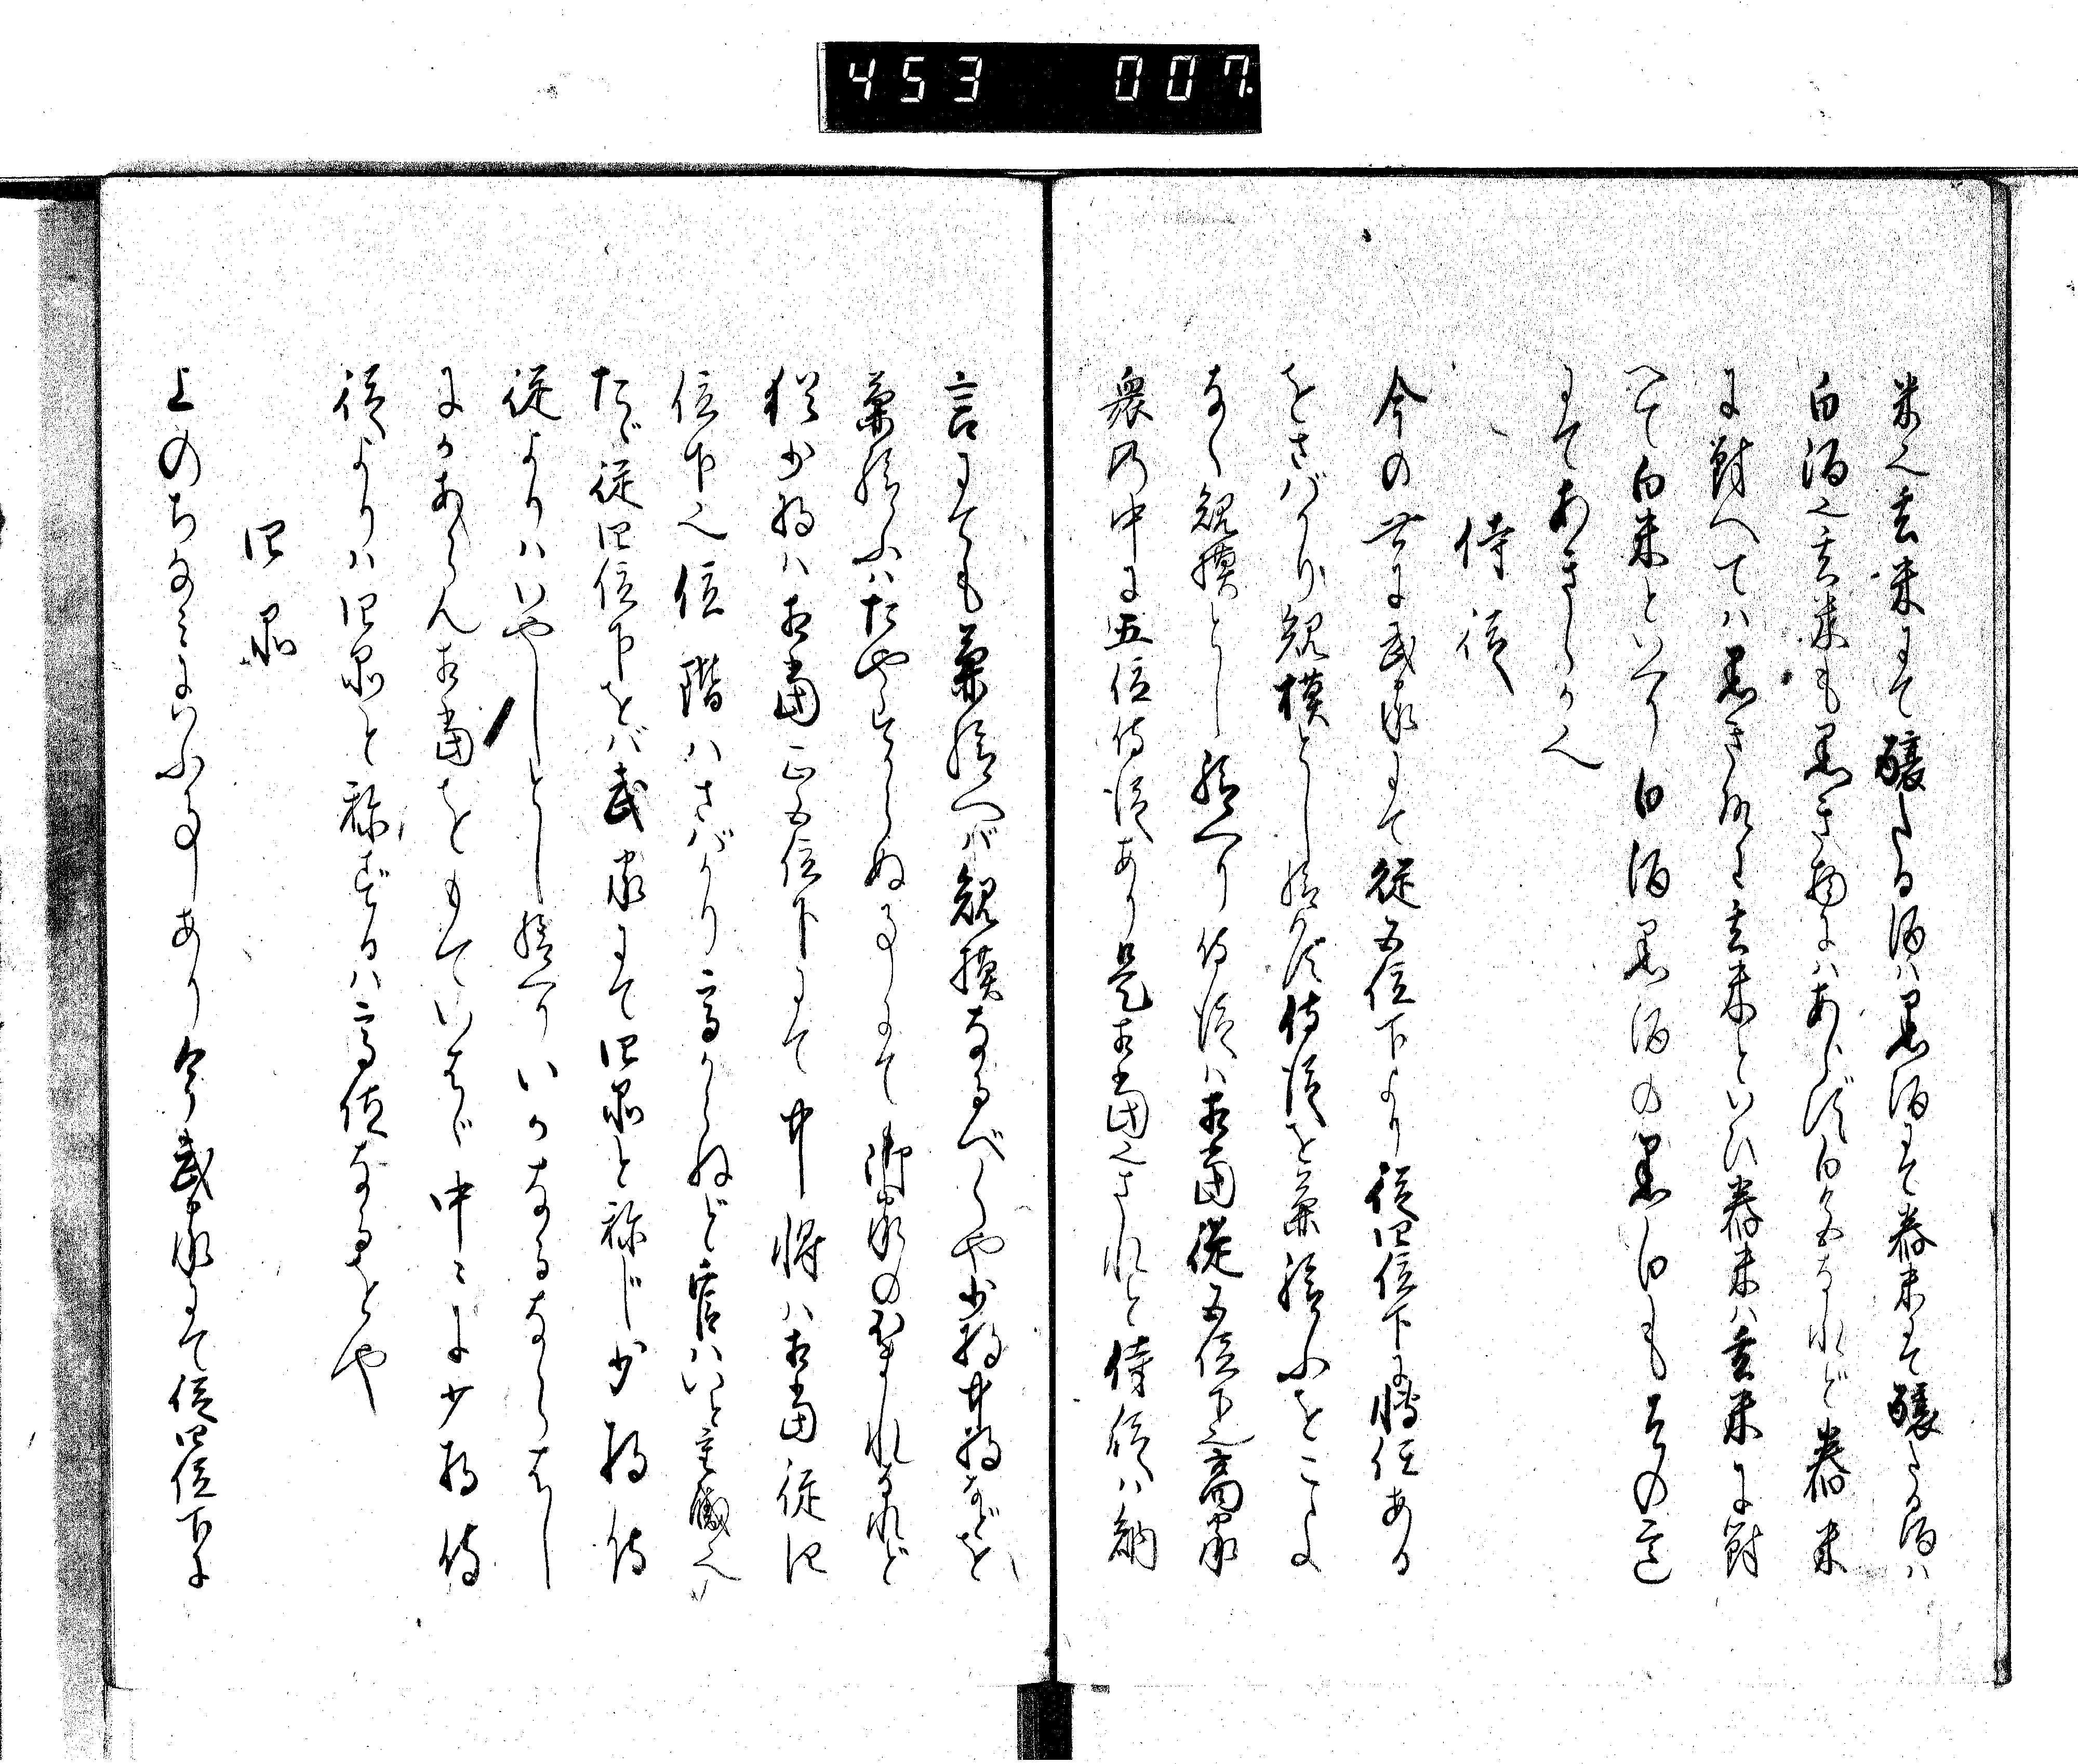 453 007.
米也玄米にて醸したる酒ハ黒酒にて舂米にて醸したる酒ハ
白酒也玄米も黒き物にハあらず白色なれど舂米
に対へてハ黒き故に玄米といひ舂米ハ玄米に対
へて白米といへり白酒黒酒の黒白もその意
にてあきらか也
侍従
今の世に武家にて従五位下より従四位下に昇任ある
をさばかり規模とし給ハず侍従を兼給ふをこよ
なく規模とし給へり侍従ハ相当従五位下也高家
衆の中に五位侍従あり是相当也されと侍従ハ納
言にても兼給へバ規模なるべくや少将中将などを
兼給ふハたやすからぬ事にて御家のほまれなれど
猶少将ハ相当正五位下にて中将ハ相当従四
位下也位階ハさばかり高からねど官ハいと重職也
たゞ従四位下をバ武家にて四品と称し少将侍
従よりハいやしとし給へりいかなるならはし
にかあらん相当をもていはゞ中々に少将侍
従よりハ四品と称するハ高位なるをや
四品
上のちなみにいふ事あり今武家にて従四位下に